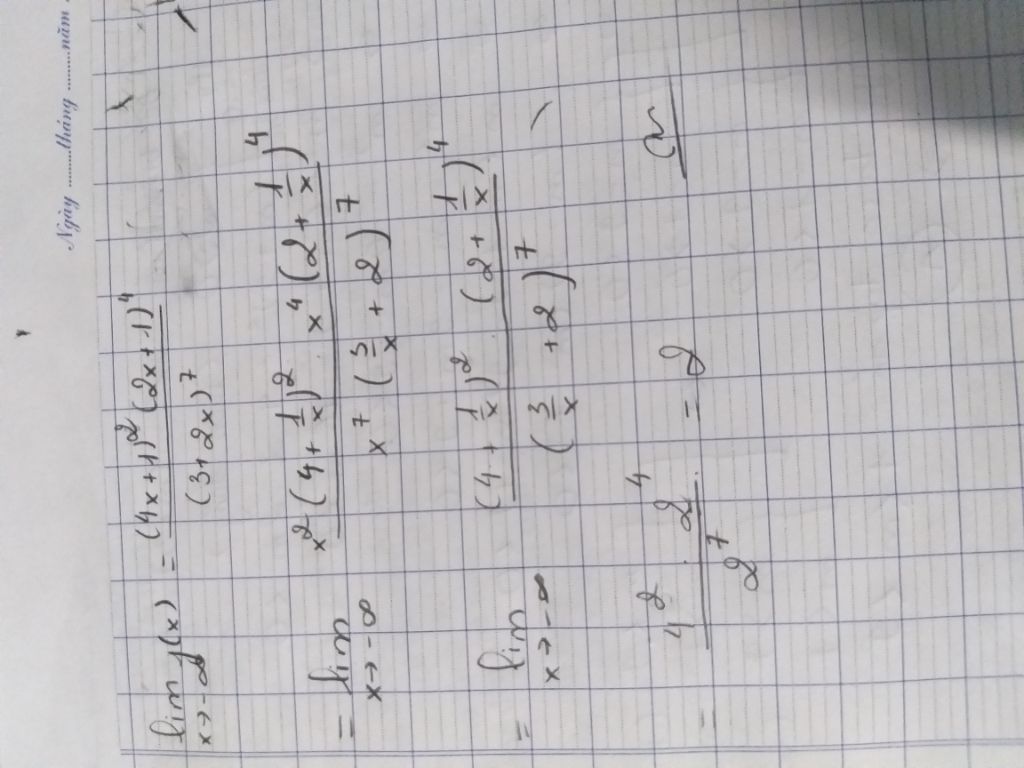 Ngày ........tháng ........năm
lim y(x) = (4x+1)² (2x+1)⁴ / (3+2x)⁷
x→-∞
= lim x² (4 + 1/x)² x⁴ (2 + 1/x)⁴ / x⁷ (3/x + 2)⁷
x→-∞
= lim (4 + 1/x)² (2 + 1/x)⁴ / (3/x + 2)⁷
x→-∞
= 4² . 2⁴ / 2⁷ = 2